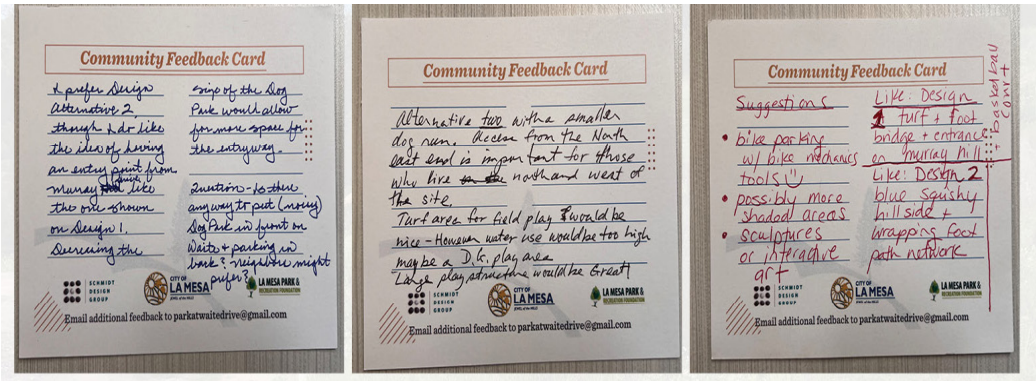 Community Feedback Card
I prefer Design
Alternative 2,
though I do like
the idea of having
an entry point from
Murray Drive like
the one shown
on Design 1.
Decreasing the
size of the Dog
Park would allow
for more space for
the entryway.
Question - Is there
anyway to put (noisy)
Dog Park in front on
Waite & parking in
back? Neighbors might
prefer?
SCHMIDT
DESIGN
GROUP
CITY OF
LA MESA
JEWEL of the HILLS
LA MESA PARK &
RECREATION FOUNDATION
Email additional feedback to parkatwaitedrive@gmail.com
Community Feedback Card
Alternative two with a smaller
dog run. Access from the North
east end is important for those
who live north and west of
the site.
Turf area for field play would be
nice - However water use would be too high
maybe a D.G. play area
Large play structure would be Great!
SCHMIDT
DESIGN
GROUP
CITY OF
LA MESA
JEWEL of the HILLS
LA MESA PARK &
RECREATION FOUNDATION
Email additional feedback to parkatwaitedrive@gmail.com
Community Feedback Card
Suggestions
• bike parking
w/ bike mechanics
tools
• possibly more
shaded areas
• sculptures
or interactive
art
Like: Design
1 turf + foot
bridge + entrance
on murray hill
+ basketball
court
Like: Design 2
blue squishy
hillside +
wrapping foot
path network
SCHMIDT
DESIGN
GROUP
CITY OF
LA MESA
JEWEL of the HILLS
LA MESA PARK &
RECREATION FOUNDATION
Email additional feedback to parkatwaitedrive@gmail.com